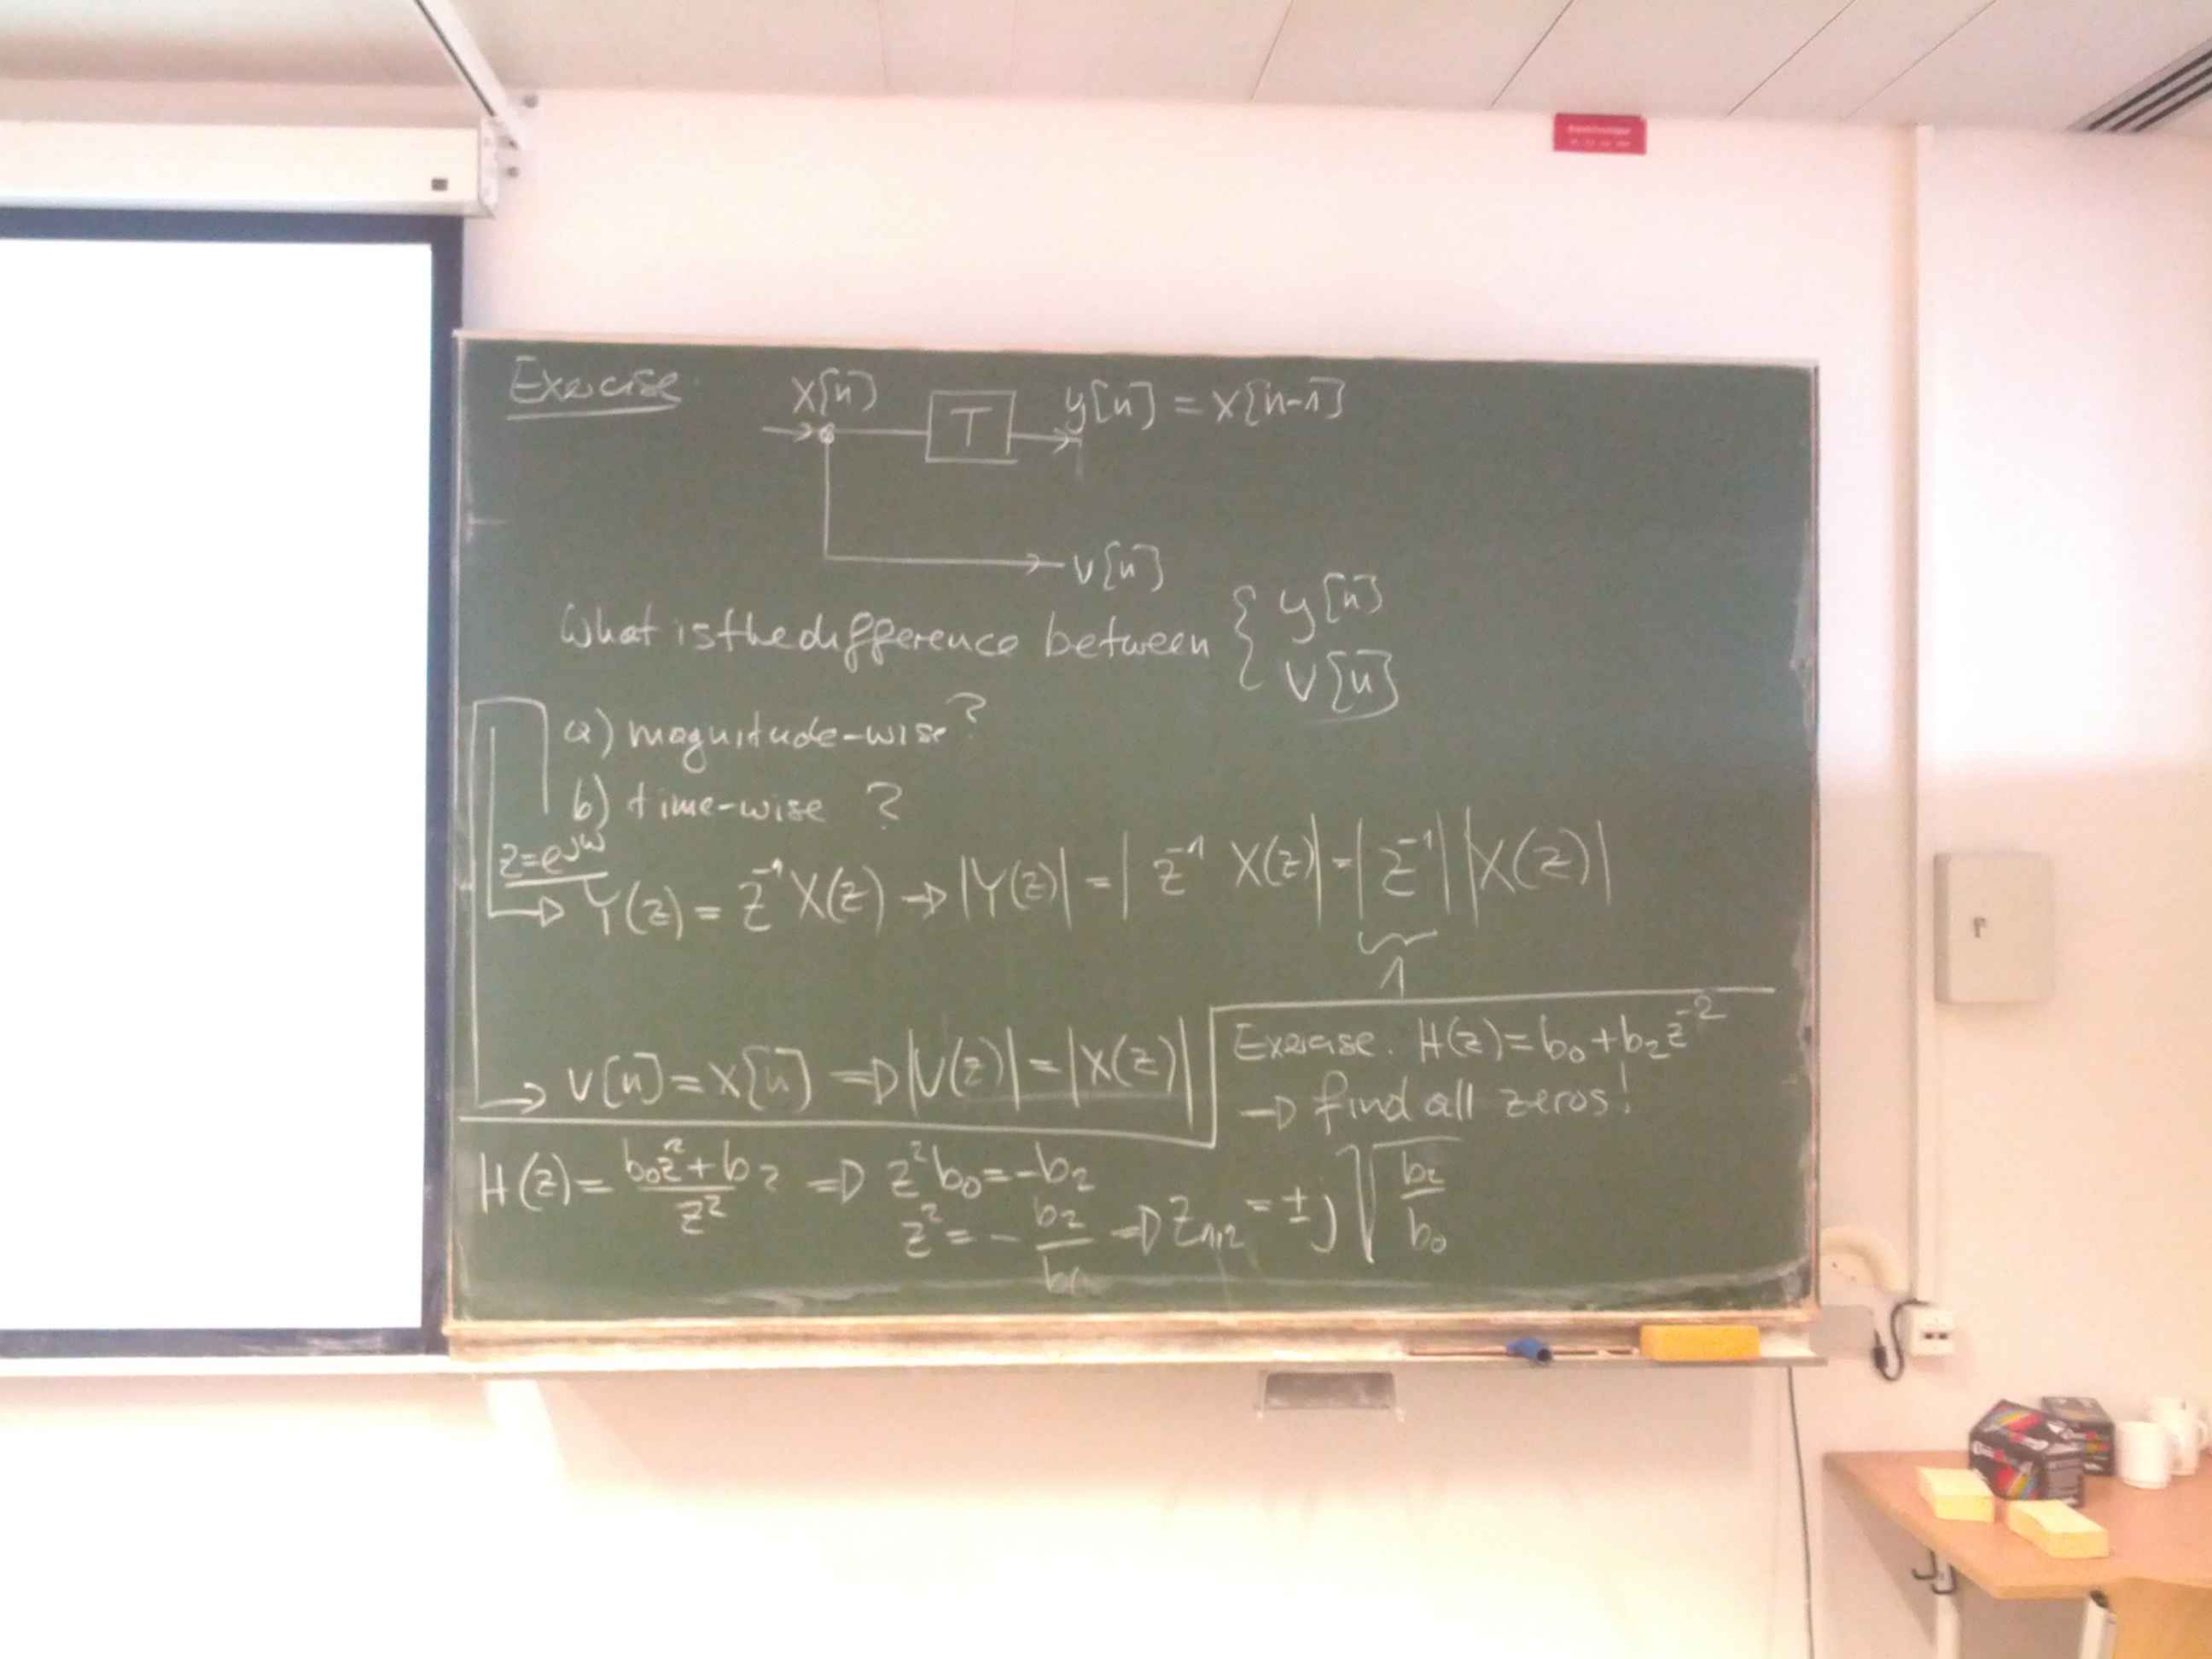 Exercise
x[n]
T
y[n] = x[n-1]
v[n]
What is the difference between { y[n]
v[n]
a) magnitude-wise?
b) time-wise ?
z=e^jω
Y(z) = z^-1 X(z) → |Y(z)| = | z^-1 X(z)| = |z^-1| |X(z)|
1
v[n] = x[n] ⇒ |V(z)| = |X(z)|
Exercise. H(z) = b0 + b2 z^-2
→ find all zeros!
H(z) = (b0 z^2 + b2) / z^2 ⇒ z^2 b0 = -b2
z^2 = - b2 / b0 ⇒ z1,2 = ± j √(b2 / b0)